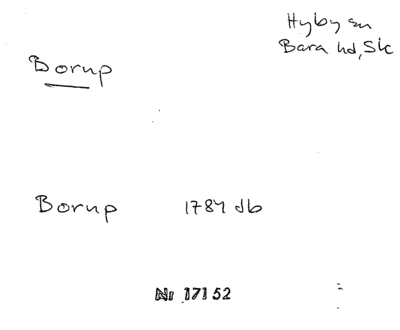 Hyby sn
Bara hd, Sk
Borup
Borup 1784 db
Nr 17152